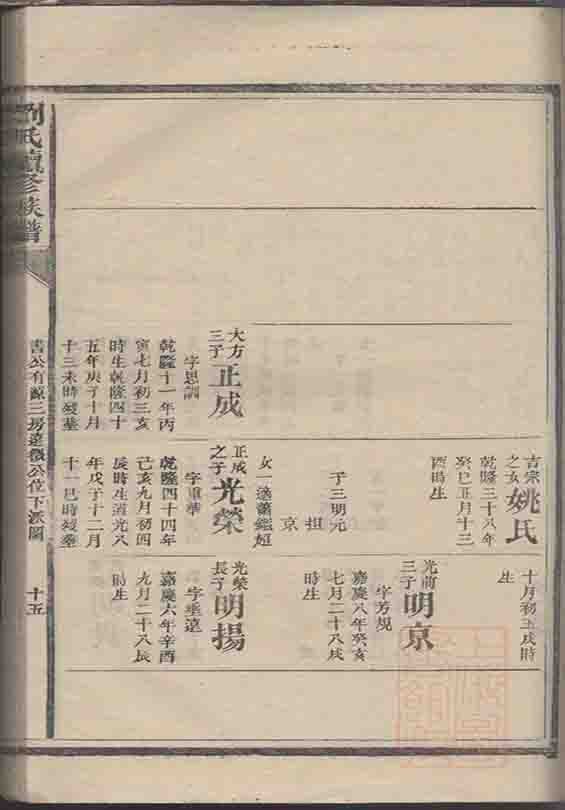 劉氏續修族譜
書公有源三房遠徵公位下派圖
十五
大方
三子
正成
字思訓
乾隆十一年丙
寅七月初三亥
時生乾隆四十
五年庚子十月
十三未時歿塟
吉宗
之女
姚氏
乾隆三十八年
癸巳正月十三
酉時生
子三明元
担
京
女一適蕭鑑
正成
之子
光榮
字重華
乾隆四十四年
己亥九月初四
辰時生道光八
年戊子十二月
十一巳時歿塟
十月初五戌時
生
光前
三子
明京
字芳規
嘉慶八年癸亥
七月二十八戌
時生
光榮
長子
明揚
字垂遠
嘉慶六年辛酉
九月二十八辰
時生